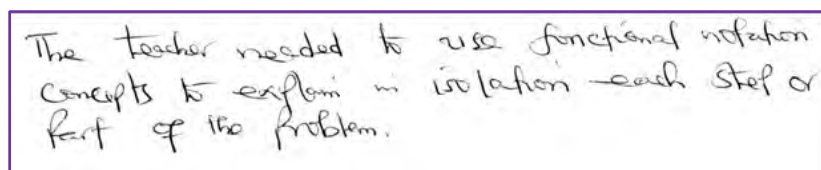 The teacher needed to use functional notation
concepts to explain in isolation each step or
part of the problem.